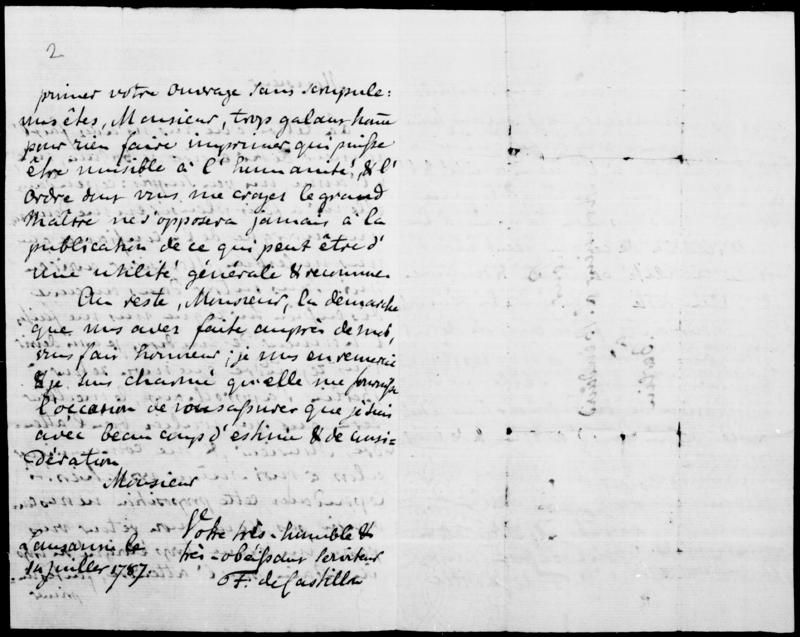 2
primer votre ouvrage sans scrupule:
vous êtes, Monsieur, trop galant hom̄e
pour rien faire imprimer qui puisse
être nuisible à l'humanité, & l'
Ordre dont vous me croyez le grand
Maître ne s'opposera jamais à la
publication de ce qui peut être d'
une utilité générale & reconnue.
Au reste, Monsieur, la démarche
que vous avez faite auprès de moi,
vous fait honneur; je vous en remercie
& je suis charmé qu'elle me fournisse
l'occasion de vous assurer que je suis
avec beaucoup d'estime & de consi-
dération
Monsieur
Votre très-humble &
très-obéissant serviteur
F. de Castilla
Lausanne le
14 juillet 1787.